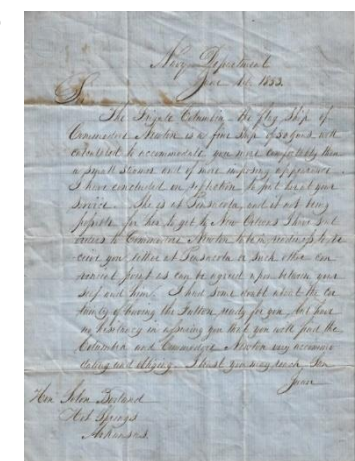 Navy Department
June 1st 1853.
Sir
The Frigate Columbia the flag Ship of
Commodore Newton is a fine Ship of 50 guns well
calculated to accommodate you more comfortably than
a small Steamer and of more imposing appearance
I have concluded on reflection to put her at your
Service. She is at Pensacola, and it not being
possible for her to get to New Orleans I have sent
orders to Commodore Newton to be in readiness to re
ceive you either at Pensacola or such other con
venient point as can be agreed upon between your
self and him. I had some doubt about the cer
tainty of having the Fulton ready for you, but have
no hesitancy in assuring you that you will find the
Columbia and Commodore Newton very accommo
dating and obliging. I trust you may reach San
Juan
Hon. Solon Borland
Hot Springs
Arkansas.